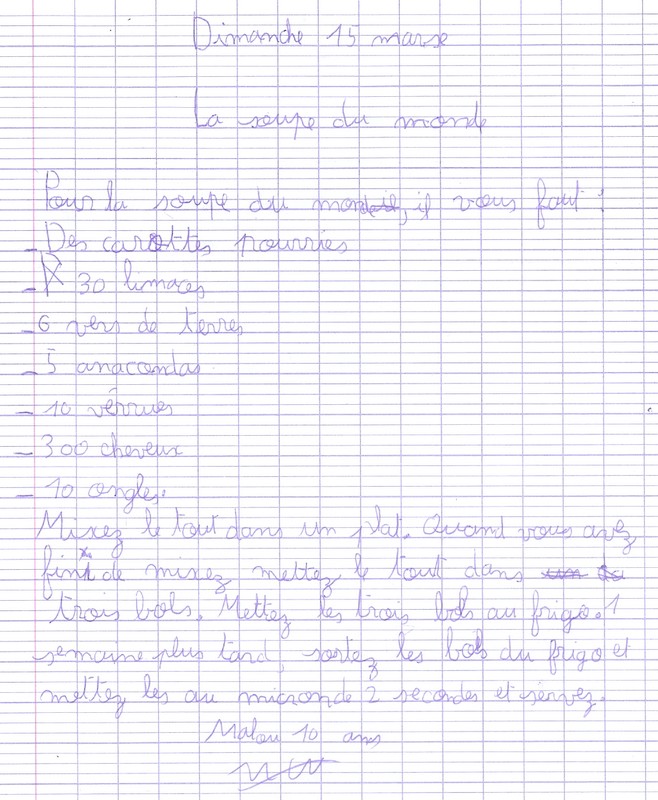 Dimanche 15 marse
La soupe du monde
Pour la soupe du monde, il vous faut :
- Des carottes pourries
- 30 limaces
- 6 vers de terres
- 5 anacondas
- 10 vérrues
- 300 cheveux
- 10 ongles.
Mixez le tout dans un plat. Quant vous avez
fini de mixez mettez le tout dans
trois bols. Mettez les trois bols au frigo. 1
semaine plus tard, sortez les bols du frigo et
mettez les au micronde 2 secondes et servez.
Malou 10 ans